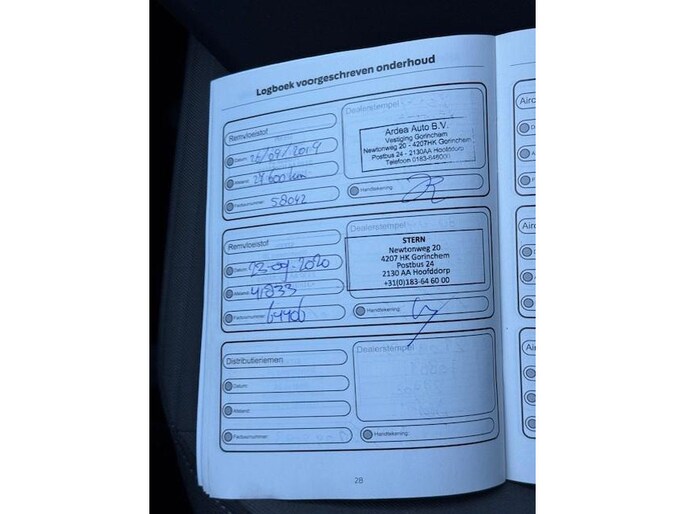 Logboek voorgeschreven onderhoud
Remvloeistof
Datum:
Afstand: 27600 km
Factuurnummer: 58042
Dealerstempel
Ardea Auto B.V.
Vestiging Gorinchem
Newtonweg 20 - 4207HK Gorinchem
Postbus 24 - 2130AA Hoofddorp
Telefoon 0183-646000
Handtekening:
Remvloeistof
Datum:
Afstand: 41833
Factuurnummer:
Dealerstempel
STERN
Newtonweg 20
4207 HK Gorinchem
Postbus 24
2130 AA Hoofddorp
+31(0)183-64 60 00
Handtekening:
Distributieriemen
Datum:
Afstand:
Factuurnummer:
Dealerstempel
Handtekening:
28